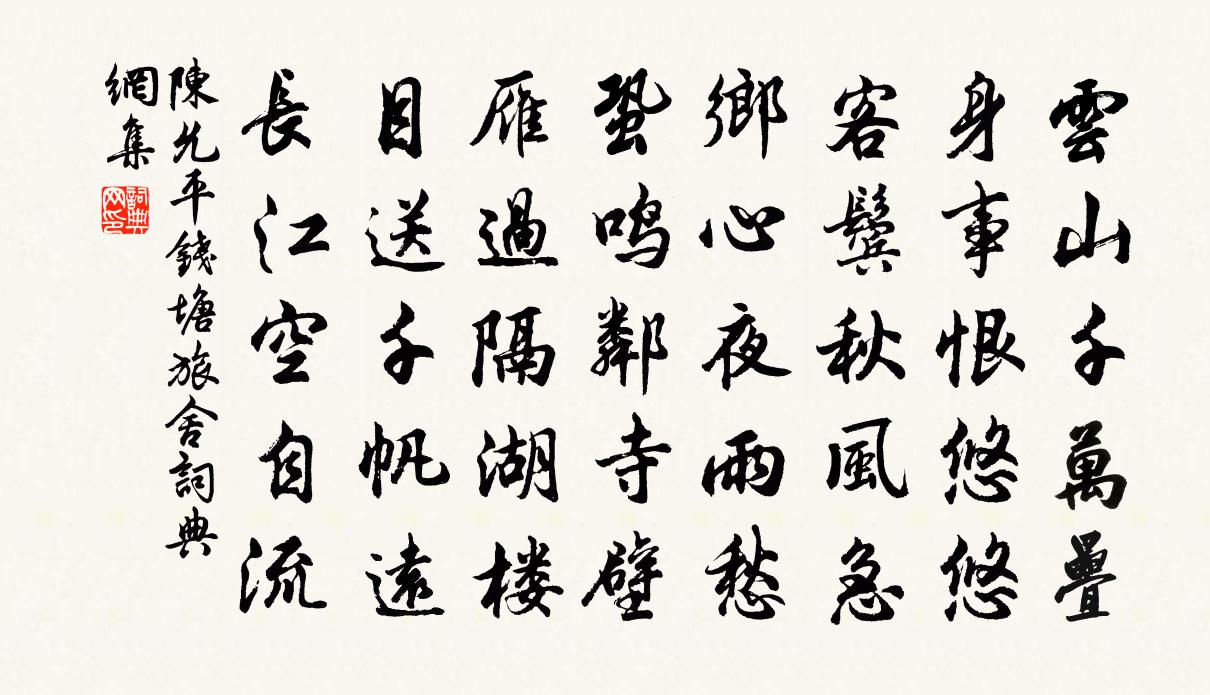 雲山千萬疊
身事恨悠悠
客鬓秋風急
鄉心夜雨愁
蛩鸣鄰寺壁
雁過隔湖楼
目送千帆遠
長江空自流
陳允平錢塘旅舍詞典
網集
詞典
网印